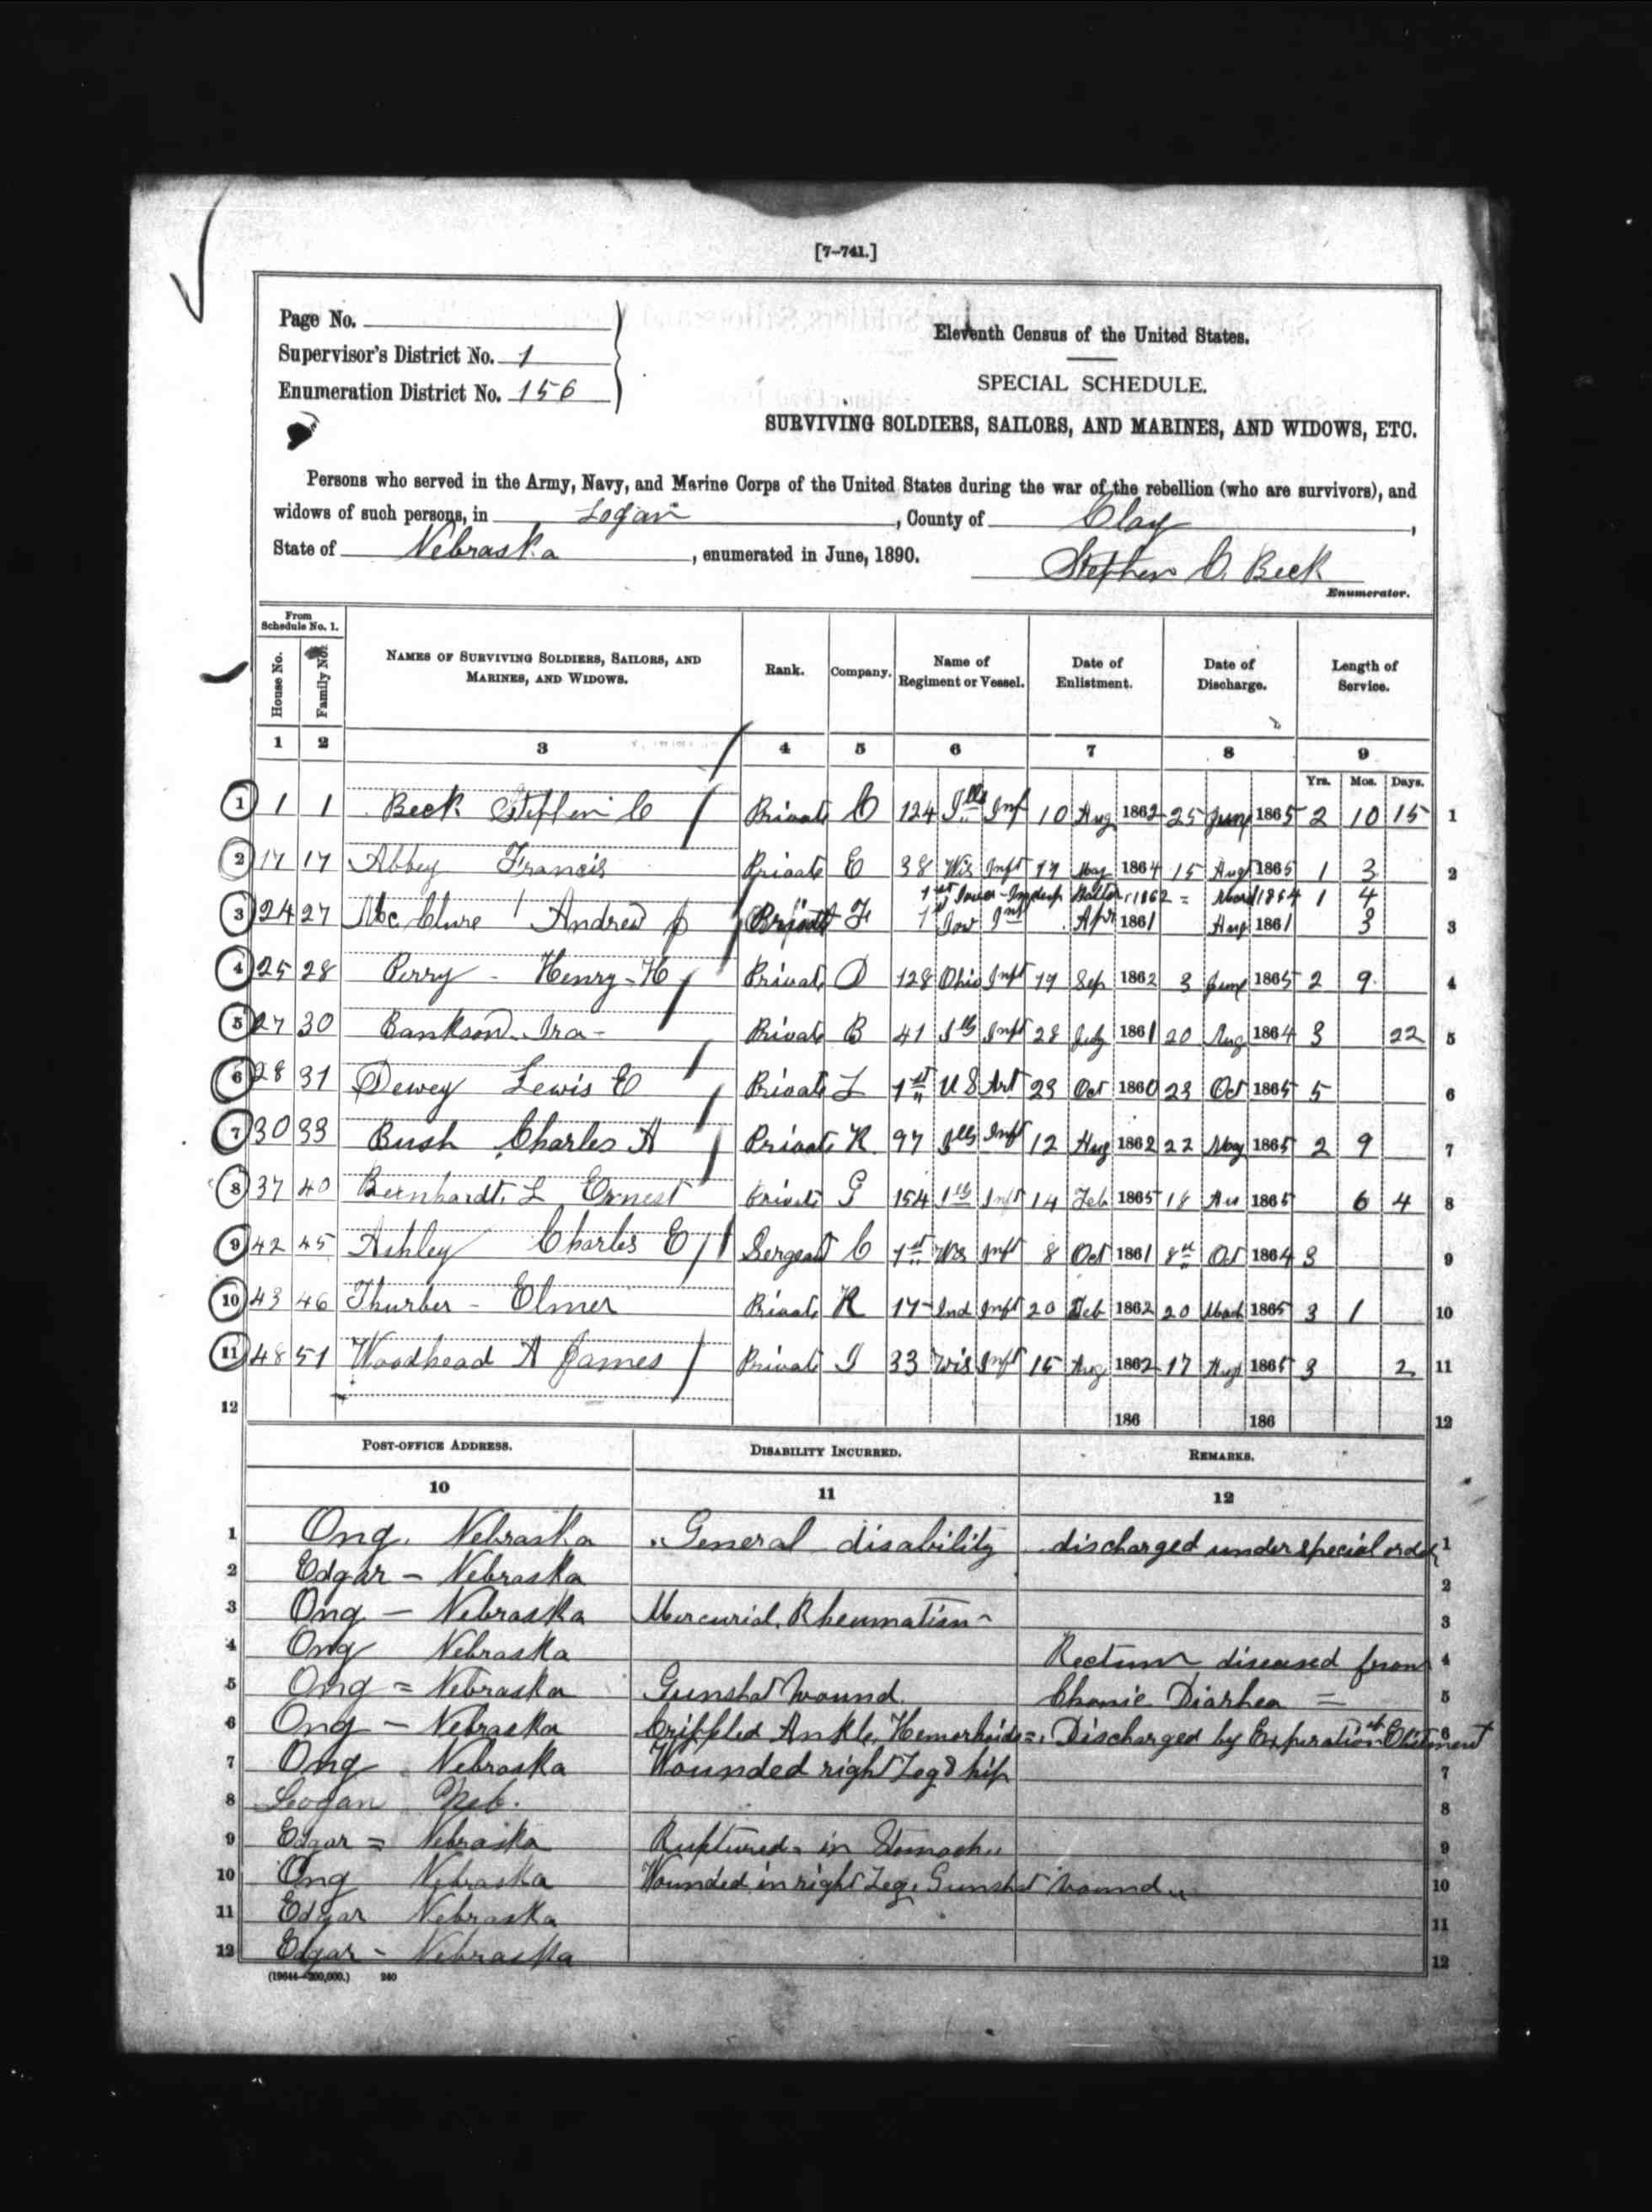 [7-741.]
Page No.
Supervisor's District No. 1
Enumeration District No. 156
Eleventh Census of the United States.
SPECIAL SCHEDULE.
SURVIVING SOLDIERS, SAILORS, AND MARINES, AND WIDOWS, ETC.
Persons who served in the Army, Navy, and Marine Corps of the United States during the war of the rebellion (who are survivors), and
widows of such persons, in Logan, County of Clay,
State of Nebraska, enumerated in June, 1890. Stephen C. Beck
Enumerator.
From Schedule No. 1. House No. Family No. NAMES OF SURVIVING SOLDIERS, SAILORS, AND MARINES, AND WIDOWS. Rank. Company. Name of Regiment or Vessel. Date of Enlistment. Date of Discharge. Length of Service.
1 2 3 4 5 6 7 8 9
Yrs. Mos. Days.
1 1 1 Beck Stephen C Private C 124 Ills Inf 10 Aug 1862 25 June 1865 2 10 15 1
2 17 17 Abbey Francis Private E 38 Wis Inft 17 May 1864 15 Aug 1865 1 3 2
1st Iowa Indep Batter 1862 = March 1864 1 4
3 24 27 McClure Andrew J Private F 1 Iow Inf Apr 1861 Aug 1861 3 3
4 25 28 Perry - Henry - H Private D 128 Ohio Inft 17 Sep 1862 3 June 1865 2 9 4
5 27 30 Bankson Ira - Private B 41 Ills Inft 28 July 1861 20 Aug 1864 3 22 5
6 28 31 Dewey Lewis E Private L 1st U S Art 23 Oct 1860 23 Oct 1865 5 6
7 30 33 Bush Charles A Private K 97 Ills Inft 12 Aug 1862 22 May 1865 2 9 7
8 37 40 Bernhardt L Ernest Private G 154 Ills Inft 14 Feb 1865 18 1865 6 4 8
9 42 45 Ashley Charles E Sergeant C 1st Wis Inft 8 Oct 1861 8th Oct 1864 3 9
10 43 46 Thurber - Elmer Private K 17 Ind Inft 20 Feb 1862 20 March 1865 3 1 10
11 48 51 Woodhead A James Private I 33 Wis Inft 15 Aug 1862 17 Aug 1865 3 2 11
12 186 186 12
POST-OFFICE ADDRESS. DISABILITY INCURRED. REMARKS.
10 11 12
1 Ong. Nebraska General disability discharged under special order 1
2 Edgar - Nebraska 2
3 Ong - Nebraska Mercurial Rheumatism 3
4 Ong Nebraska Rectum diseased from 4
5 Ong = Nebraska Gunshot Wound Chonic Diarhea = 5
6 Ong - Nebraska Crippled Ankle, Hemorhoids = Discharged by Expiration of Elistment 6
7 Ong Nebraska Wounded right Leg & hip 7
8 Logan Neb. 8
9 Edgar = Nebraska Ruptured in Stomach 9
10 Ong Nebraska Wounded in right Leg, Gunshot Wound 10
11 Edgar Nebraska 11
12 Edgar - Nebraska 12
(19644-200,000.) 240